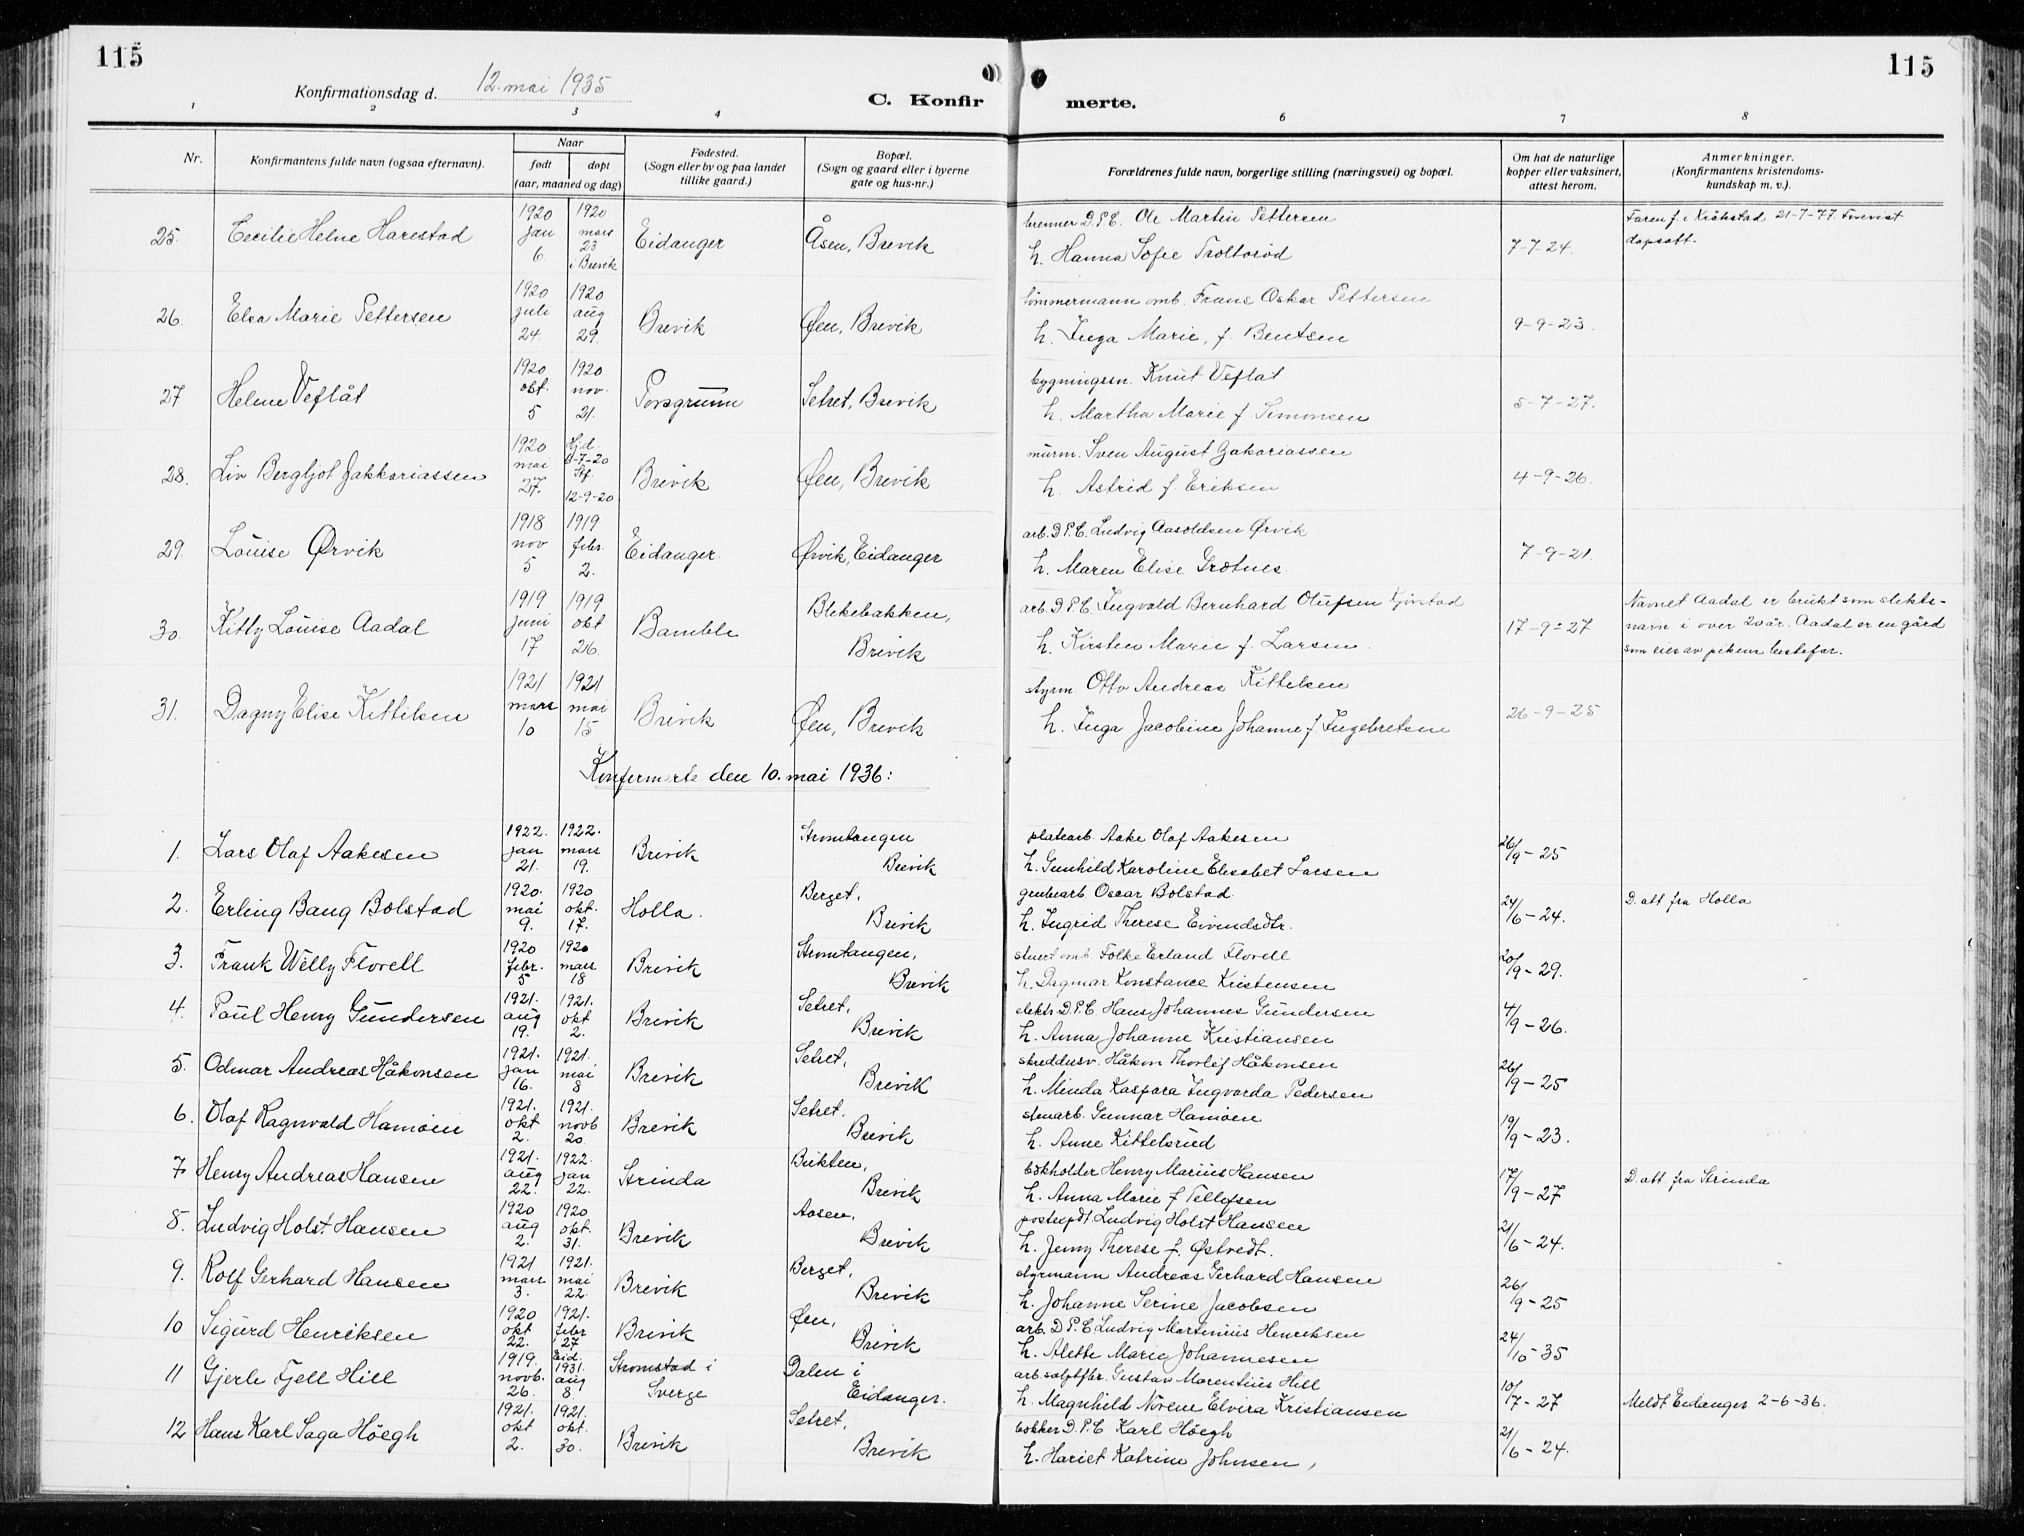 115
115
Konfirmationsdag d. 12. mai 1935
C. Konfir merte.
1 2 3 4 6 7 8
Nr. Konfirmantens fulde navn (ogsaa efternavn). Naar født døpt (aar, maaned og dag) Fødested. (Sogn eller by og paa landet tillike gaard.) Bopæl. (Sogn og gaard eller i byerne gate og hus-nr.) Forældrenes fulde navn, borgerlige stilling (næringsvei) og bopæl. Om hat de naturlige kopper eller vaksinert, attest herom. Anmerkninger. (Konfirmantens kristendoms-kundskap m. v.).
25. Cecilie Helne Harestad 1920 jan 6. 1920 mars 23 i Brevik Eidanger Åsen, Brevik brenner D.P.C. Ole Martin Pettersen h. Hanna Sofie 7-7-24. 21-7-77 dapsatt.
26. Elsa Marie Pettersen 1920 juli 24. 1920 aug 29. Brevik Øen, Brevik tømmermann omb. Frans Oskar Pettersen h. Inga Marie, f. Bentsen 9-9-23.
27 Helene Veflåt 1920 okt. 5 1920 nov. 21. Porsgrunn Setret, Brevik bygningssn. Knut Veflat h. Martha Marie f. Simonsen 5-7-27.
28. Liv Bergljot Jakkariassen 1920 mai 27. Hj.d. 6-7-20 Stf. 12-9-20 Brevik Øen, Brevik murm. Sven August Zakariassen h. Astrid f. Eriksen 4-9-26.
29. Louise Ørvik 1918 nov 5 1919 febr. 2. Eidanger. Ørvik, Eidanger arb. D.P.C. Ludvig Aasoldsen Ørvik h. Maren Elise Grotnes. 7-9-21.
30. Kitty Louise Aadal 1919 juni 17 1919 okt 26. Bamble Blekebakken, Brevik arb. D.P.C. Ingvald Bernhard Olufsen Kjørstad h. Kirsten Marie f. Larsen. 17-9-27 Navnet Aadal er brukt som slektsnavn i over 20 år. Aadal er en gård som eies av pikens bestefar.
31. Dagny Elise Kittilsen 1921 mars 10 1921 mai 15 Brevik Øen, Brevik styrm. Otto Andreas Kittilsen h. Inga Jacobine Johanne f. Ingebretsen 26-9-25
Konfirmerte den 10. mai 1936:
1. Lars Olaf Aakesen 1922. jan 21. 1922. mars 19. Brevik Stromtangen Brevik platearb. Aake Olaf Aakesen h. Gunhild Karoline Elisabet Larsen 26/9-25
2. Erling Bang Bolstad 1920. mai 9. 1920 okt. 17. Holla. Berget, Brevik grubearb. Oscar Bolstad. h. Ingrid Therese Eivindsdtr. 24/6-24. D. att fra Holla
3. Frank Willy Florell 1920 febr. 5 1920 mars 18 Brevik Stromtangen, Brevik stuert omb. Folke Erland Florell h. Dagmar Konstance Kristensen 20/9-29.
4. Poul Henry Gundersen 1921. aug 19. 1921. okt 2. Brevik Setret, Brevik elektr. D.P.C Hans Johannes Gundersen h. Anna Johanne Kristiansen 4/9-26.
5. Odmar Andreas Håkonsen 1921. jan 16. 1921. mai 8 Brevik Setret, Brevik skreddersv. Håkon Thorleif Håkonsen h. Minda Kaspara Ingvarda Pedersen 26/9-25
6. Olaf Ragnvald Hamøen 1921. okt 2. 1921. novb 20. Brevik Setret. Brevik stenarb. Gunnar Hamøen h. Anne Kittelsrud 19/9-23.
7 Henry Andreas Hansen 1921. aug 22. 1922. jan 22. Strinda Bukten, Brevik bokholder Henry Marius Hansen h. Anna Marie f. Tellefsen 17/9-27 D. att. fra Strinda
8. Ludvig Holst Hansen 1920 aug 2. 1920 okt. 31. Brevik Aasen, Brevik postexpdt. Ludvig Holst Hansen h. Jenny Therese f. Østvedt. 21/6-24.
9. Rolf Gerhard Hansen 1921 mars 3. 1921. mai 22. Brevik Berget, Brevik styrmann Andreas Gerhard Hansen h. Johanne Serine Jacobsen 26/9-25
10 Sigurd Henriksen 1920 okt 22. 1921. febr 27 Brevik Øen, Brevik arb. D.P.C Ludvig Martinius Henriksen h. Alette Marie Johannesen 24/10-35
11 Gjerle Fjell Hill 1919. novb. 26. Eid. 1931. aug 8 Stromstad i Sverge Dalen i Eidanger. Gustav Marentius Hill h. Magnhild Norene Elvira Kristiansen 10/7-27 Meldt Eidanger 2-6-36.
12 Hans Karl Saga Höegh 1921. okt 2. 1921. okt. 30. Brevik Setret, Brevik bøkker D.P.C Karl Höegh h. Hariet Katrine Johnsen, 21/6-24.